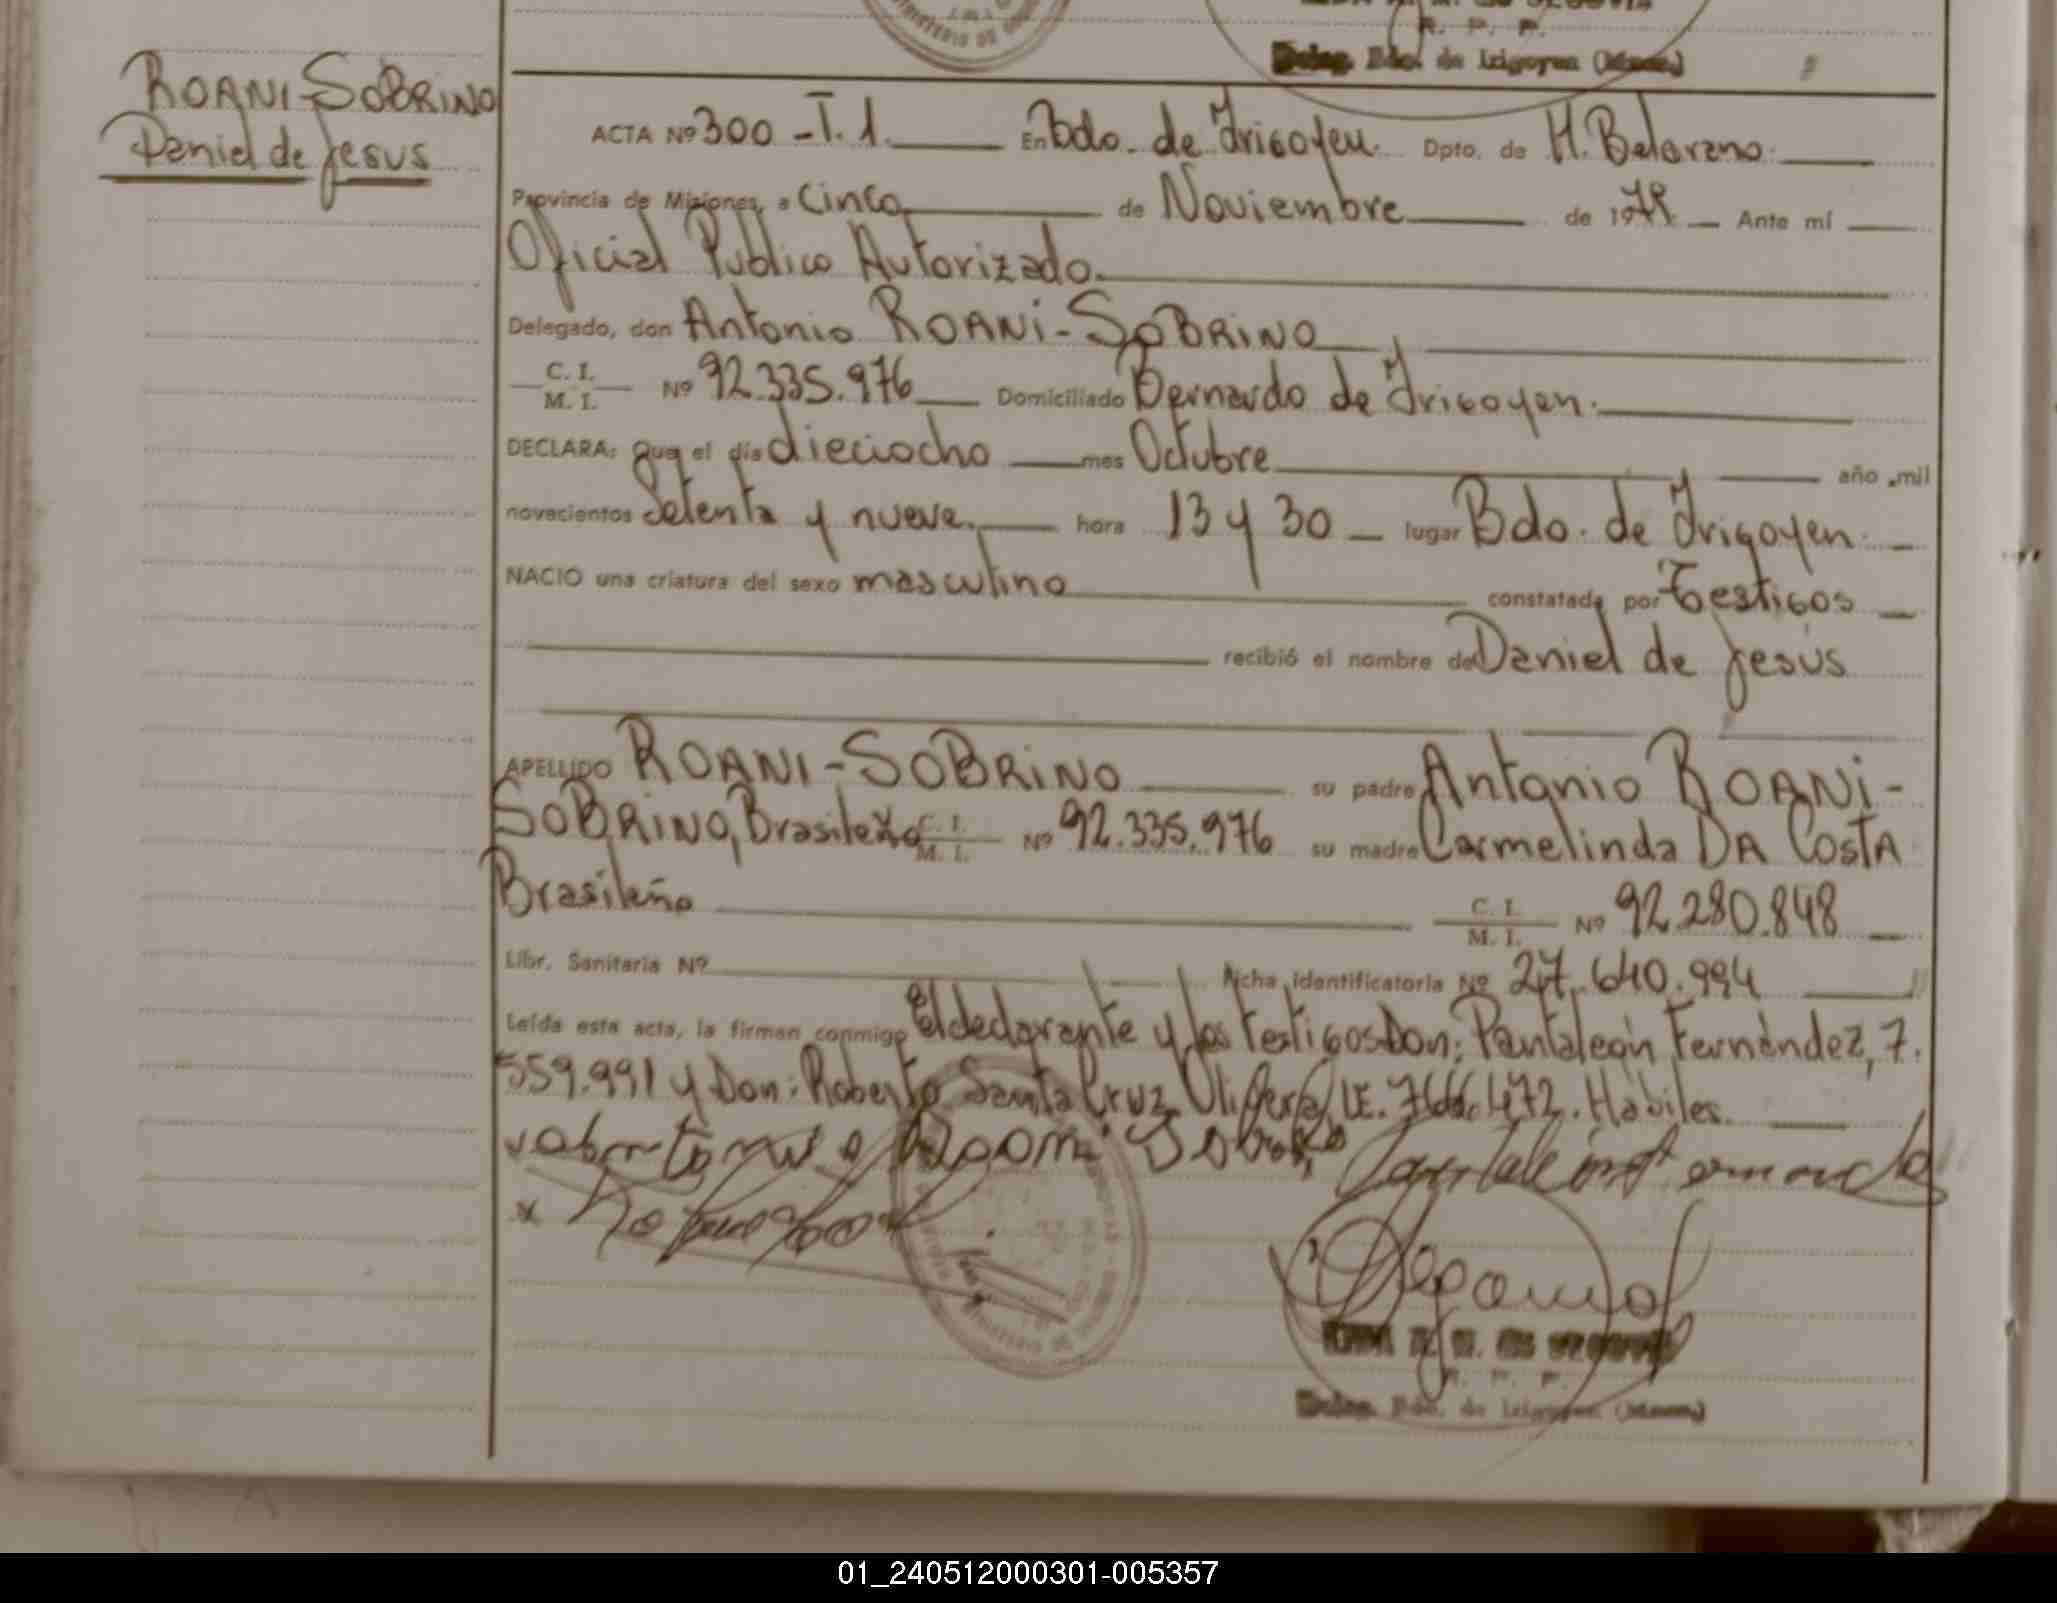 R. P. P.
Deleg. Bdo. de Irigoyen (Mnes.)
ROANI-SOBRINO
Daniel de Jesus
ACTA Nº 300 - T. 1. En Bdo. de Irigoyen. Dpto. de M. Belgrano.
Provincia de Misiones, a Cinco de Noviembre de 1979. Ante mí
Oficial Publico Autorizado.
Delegado, don Antonio ROANI-SOBRINO
C. I. M. I. Nº 92.335.976 Domiciliado Bernardo de Irigoyen.
DECLARA: Que el día dieciocho mes Octubre año mil
novecientos Setenta y nueve. hora 13 y 30 lugar Bdo. de Irigoyen.
NACIO una criatura del sexo masculino constatada por Testigos
recibió el nombre de Daniel de Jesús
APELLIDO ROANI-SOBRINO su padre Antonio ROANI-
SOBRINO, Brasileño C. I. M. I. Nº 92.335.976 su madre Carmelinda DA COSTA
Brasileña C. I. M. I. Nº 92.280.848
Libr. Sanitaria Nº Ficha identificatoria Nº 27.640.994
Leída esta acta, la firman conmigo El declarante y los testigos Don: Pantaleón Fernández, 7.
559.991 y Don: Roberto Santa Cruz Olivera, LE. Hábiles.
R. P. P.
Deleg. Bdo. de Irigoyen (Mnes.)
01_240512000301-005357